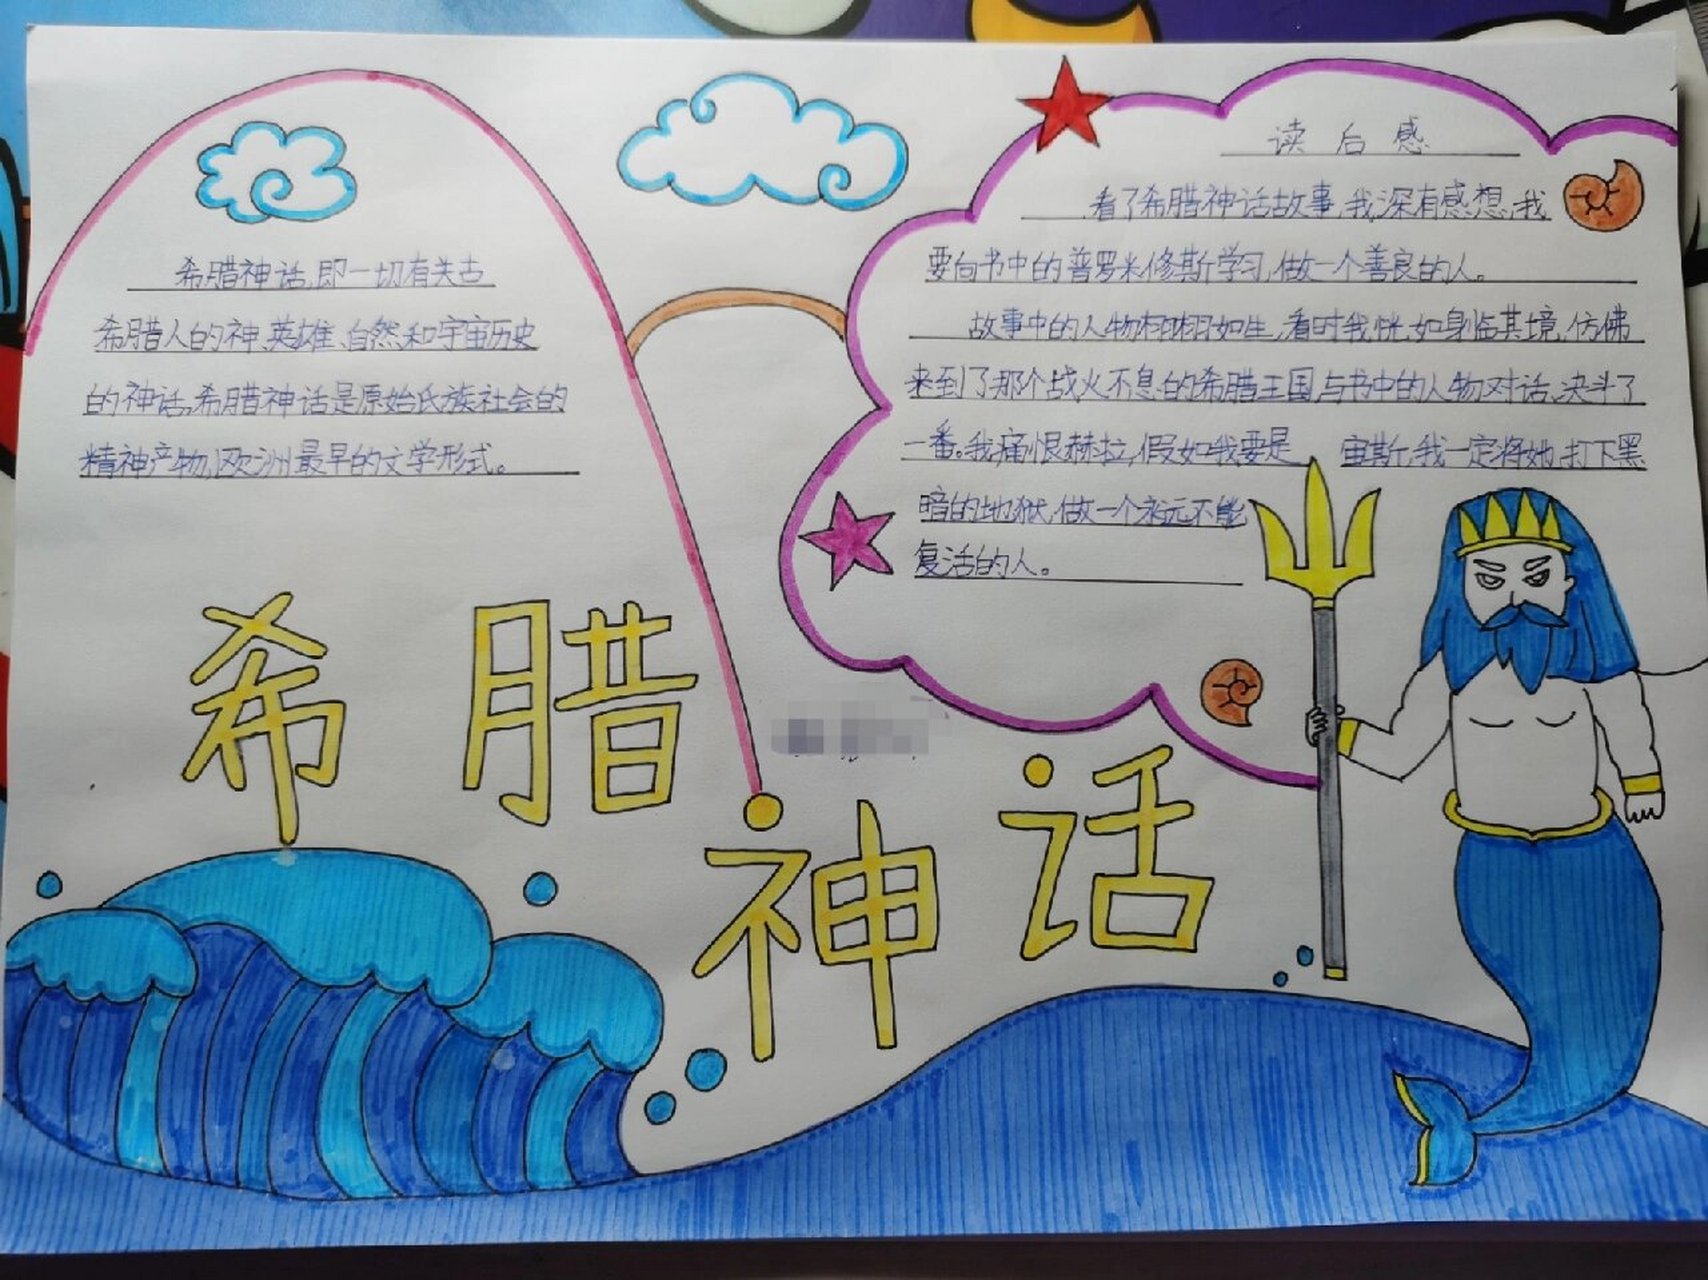 希腊神话,即一切有关古
希腊人的神、英雄、自然和宇宙历史
的神话,希腊神话是原始氏族社会的
精神产物,欧洲最早的文学形式。
读后感
看了希腊神话故事,我深有感想,我
要向书中的普罗米修斯学习,做一个善良的人。
故事中的人物栩栩如生,看时我恍如身临其境,仿佛
来到了那个战火不息的希腊王国,与书中的人物对话、决斗了
一番。我痛恨赫拉,假如我要是宙斯,我一定将她打下黑
暗的地狱,做一个永远不能
复活的人。
希腊
神话